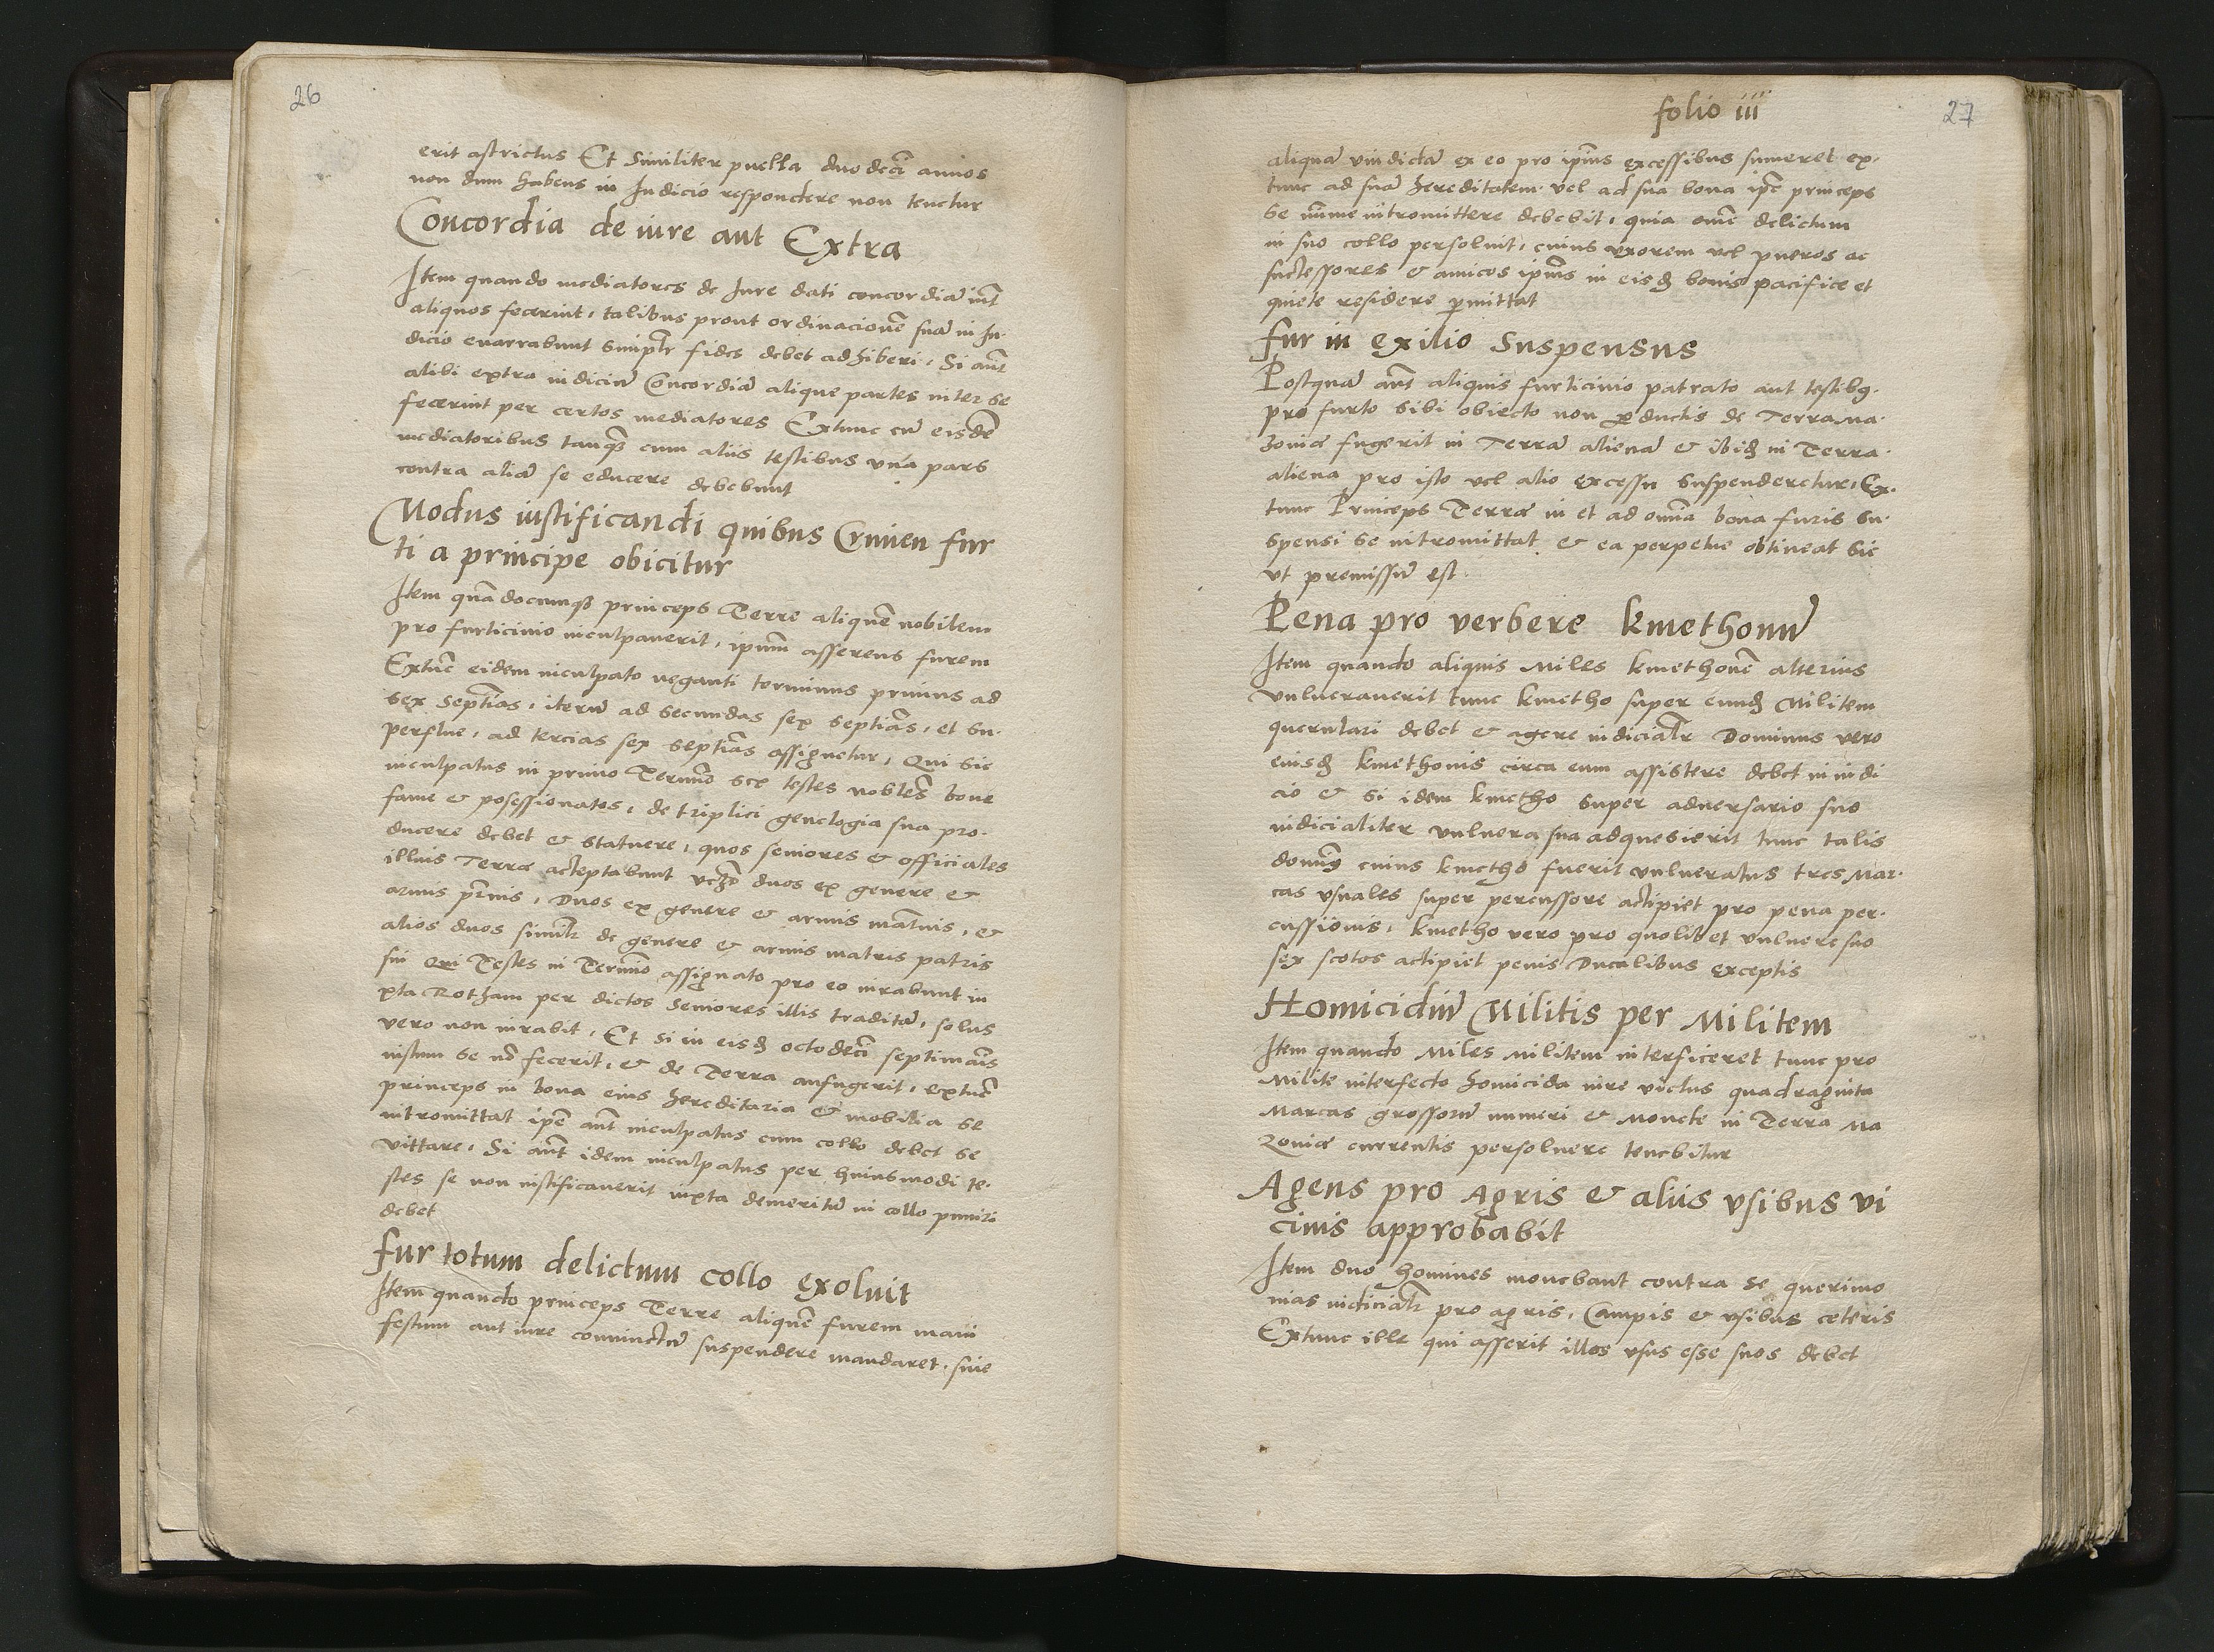 26
erit astrictus Et Similiter puella duodeci annos
non dum habens in Judicio respondere non tenetur
Concordia de iure aut Extra
Item quando mediatores de Jure dati concordiã int
aliquos fecerint, talibus prout ordinacionẽ suã in Ju-
dicio enarrabunt simplr fides debet adhiberi, Si aut
alibi extra iudiciũ Concordiã alique partes inter se
fecerint per certos mediatores Extunc cũ eisdẽ
mediatoribus tanq̃ cum aliis testibus vna pars
contra aliã se educere debebunt
Modus iustificandi quibus Crimen fur
ti a principe obicitur
Item quãdocumq3 princeps Terre aliquẽ nobilem
pro furticinio inculpauerit, ipum asserens furem
Extũc eidem inculpato neganti terminus primus ad
sex Septĩas, iterũ ad secundas sex septĩas, et su-
perflue, ad tercias sex septĩas assignetur, Qui sic
inculpatus in primo Termĩo sex testes nobiles bone
fame & posessionatos, de triplici genelogia sua pro-
ducere debet & statuere, quos seniores & officiales
illius Terræ acceptabunt duos ex genere &
armis prnis, Duos ex genere & armis matnis, &
alios duos similr de genere & armis matris patris
sui Qui Testes in Termĩo assignato pro eo iurabunt iu
xta Rotham per dictos Seniores illis traditã, solus
vero non iurabit, Et si in eisd octodeci septimãis
iustum se nõ fecerit, & de Terra aufugerit, extũc
princeps in bona eius hereditaria & mobilia se
intromittat ipẽ aut inculpatus cum collo debet se
vittare, Si aut idem inculpatus per huiusmodi te-
stes se non iustificauerit iuxta demeritũ in collo puniri
debet
fur totum delictum collo exoluit
Item quando princeps Terre aliquẽ furem mani
festum aut iure conuinctũ suspendere mandaret, siue
folio iii
27
aliquã vindictã ex eo pro ipius excessibus sumeret ex-
tunc ad suã hereditatem vel ad sua bona ipẽ princeps
se mĩme ĩtromittere debebit, quia omẽ delictum
in suo collo persoluit, cuius vxorem vel pueros ac
successores & amicos ipius in eisd bonis pacifice et
quiete residere pmittat
fur in exilio Suspensus
Postquã aut aliquis furticinio patrato aut testib9
pro furto sibi obiecto non productis de Terra Ma-
zoviæ fugerit in Terrã alienã & ibid in Terra
aliena pro isto vel alio excessu suspenderetur, Ex-
tunc Princeps Terræ in et ad omĩa bona furis su-
spensi se intromittat & ea perpetue obtineat sic
vt premissũ est
Pena pro verbere kmethonũ
Item quando aliquis Miles kmethonẽ alterius
vulnerauerit tunc kmetho super eund Militem
querulari debet & agere iudicialr Dominus vero
eiusd kmethonis circa eum assistere debet in iudi
cio & si idem kmetho super aduersario suo
iudicialiter vulnera sua adquesierit tunc talis
domin9 cuius kmetho fuerit vulneratus tres Mar-
cas vsuales super percussore accipiet pro pena per-
cussionis, kmetho vero pro quolibet vulnere suo
sex scotos accipiet penis Ducalibus exceptis
Homicidiũ Militis per Militem
Item quando Miles Militem interficeret tunc pro
Milite interfecto homicida iure victus quadraginta
Marcas grossorũ numeri & Monete in Terra Ma
zoviæ currentis persoluere tenebitur
Agens pro Agris & aliis vsibus vi
cinis approbabit
Item duo homines mouebant contra se querimo
nias iudicialr pro agris, Campis & vsibus ceteris
Extunc ille qui asserit illos vsus esse suos debet